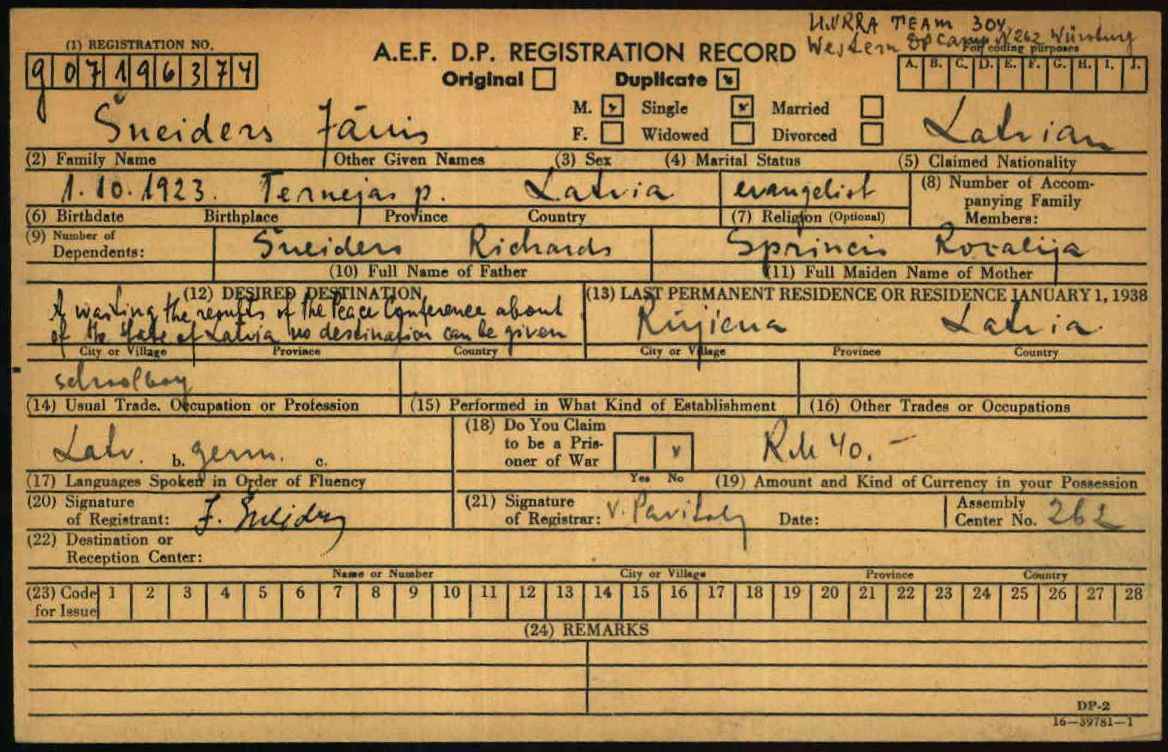 UNRRA TEAM 304
Western DP Camp N 262 Würzburg
(1) REGISTRATION NO.
A.E.F. D.P. REGISTRATION RECORD
For coding purposes
G07196374
Original Duplicate
A. B. C. D. E. F. G. H. I. J.
M. Single Married
F. Widowed Divorced
Šneiders Jānis Latvian
(2) Family Name Other Given Names (3) Sex (4) Marital Status (5) Claimed Nationality
1.10.1923. Ternejas p. Latvia evangelist
(8) Number of Accom-
panying Family
Members:
(6) Birthdate Birthplace Province Country (7) Religion (Optional)
(9) Number of
Dependents:
Šneiders Richards Sprincis Rozalija
(10) Full Name of Father (11) Full Maiden Name of Mother
(12) DESIRED DESTINATION (13) LAST PERMANENT RESIDENCE OR RESIDENCE JANUARY 1, 1938
A waiting the results of the Peace Conference about
of the state of Latvia no descination can be given
Rūjiena Latvia
City or Village Province Country City or Village Province Country
schoolboy
(14) Usual Trade, Occupation or Profession (15) Performed in What Kind of Establishment (16) Other Trades or Occupations
Latv. b. germ. c.
(18) Do You Claim
to be a Pris-
oner of War
Yes No
RM 40.-
(17) Languages Spoken in Order of Fluency (19) Amount and Kind of Currency in your Possession
(20) Signature
of Registrant: J. Šneiders
(21) Signature
of Registrar: V. Date:
Assembly
Center No. 262
(22) Destination or
Reception Center:
Name or Number City or Village Province Country
(23) Code for Issue 1 2 3 4 5 6 7 8 9 10 11 12 13 14 15 16 17 18 19 20 21 22 23 24 25 26 27 28
(24) REMARKS
DP-2
16—39781-1